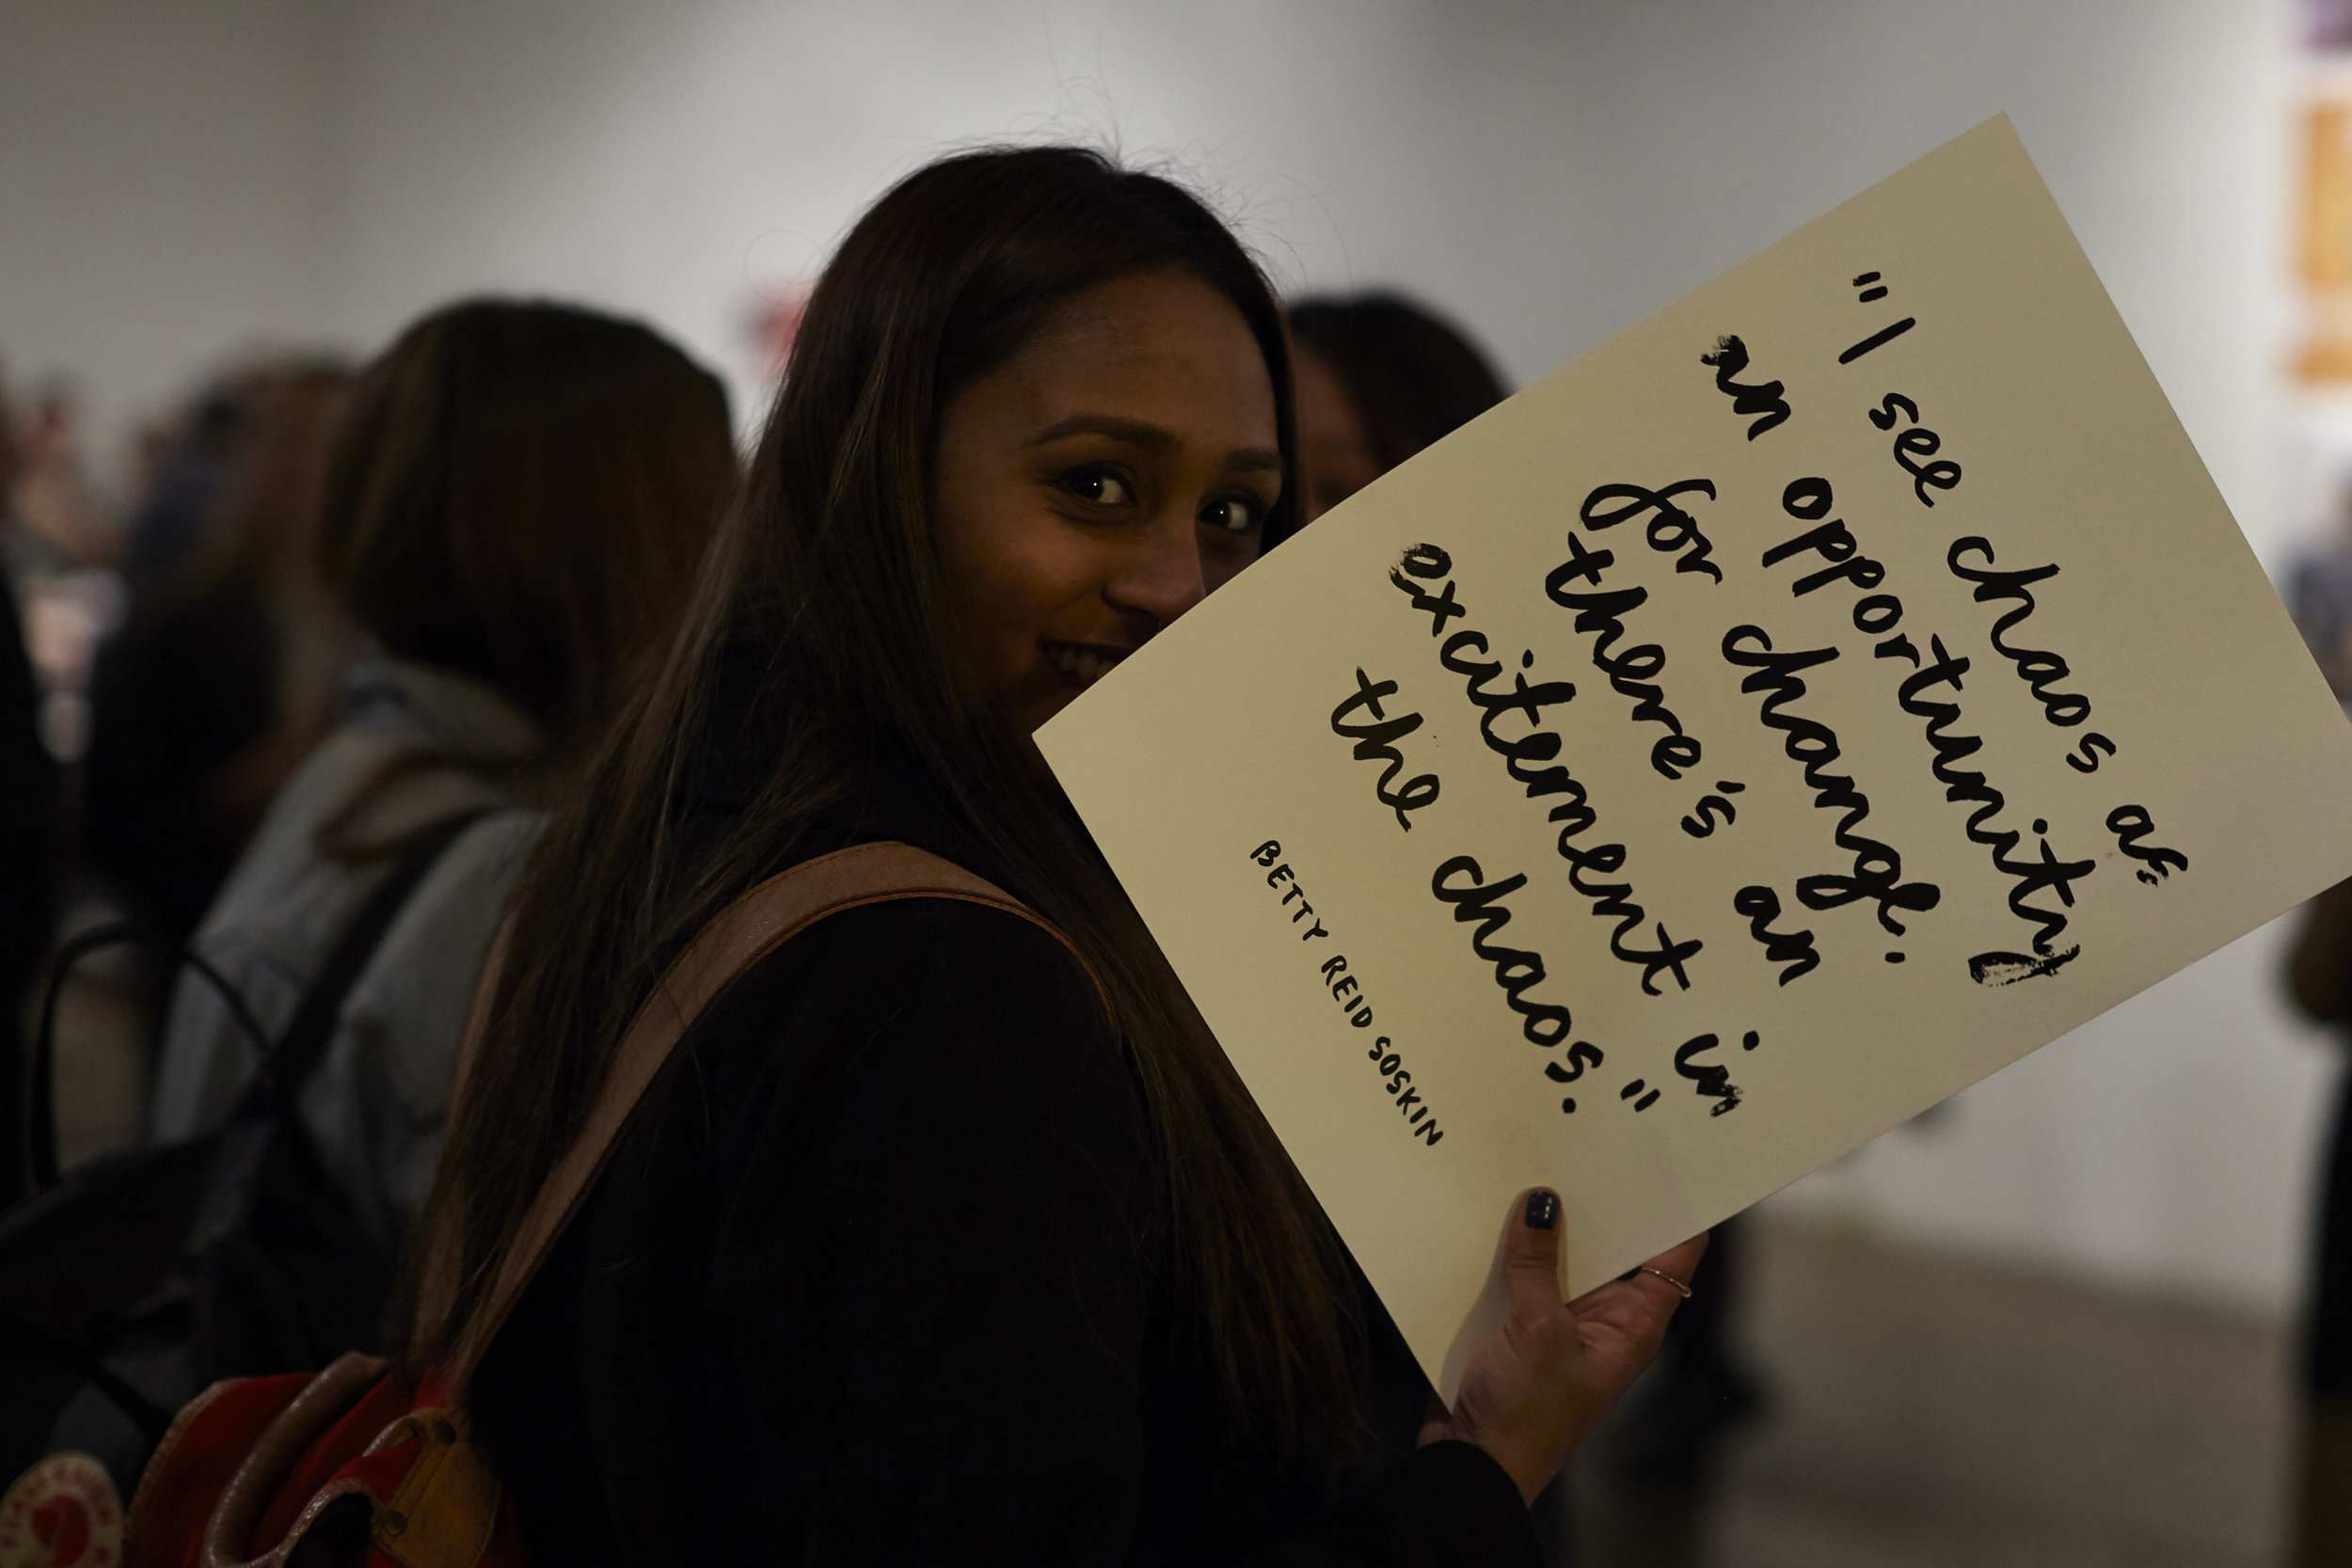 "I see chaos as
an opportunity
for change.
there's an
excitement in
the chaos."
BETTY REID SOSKIN